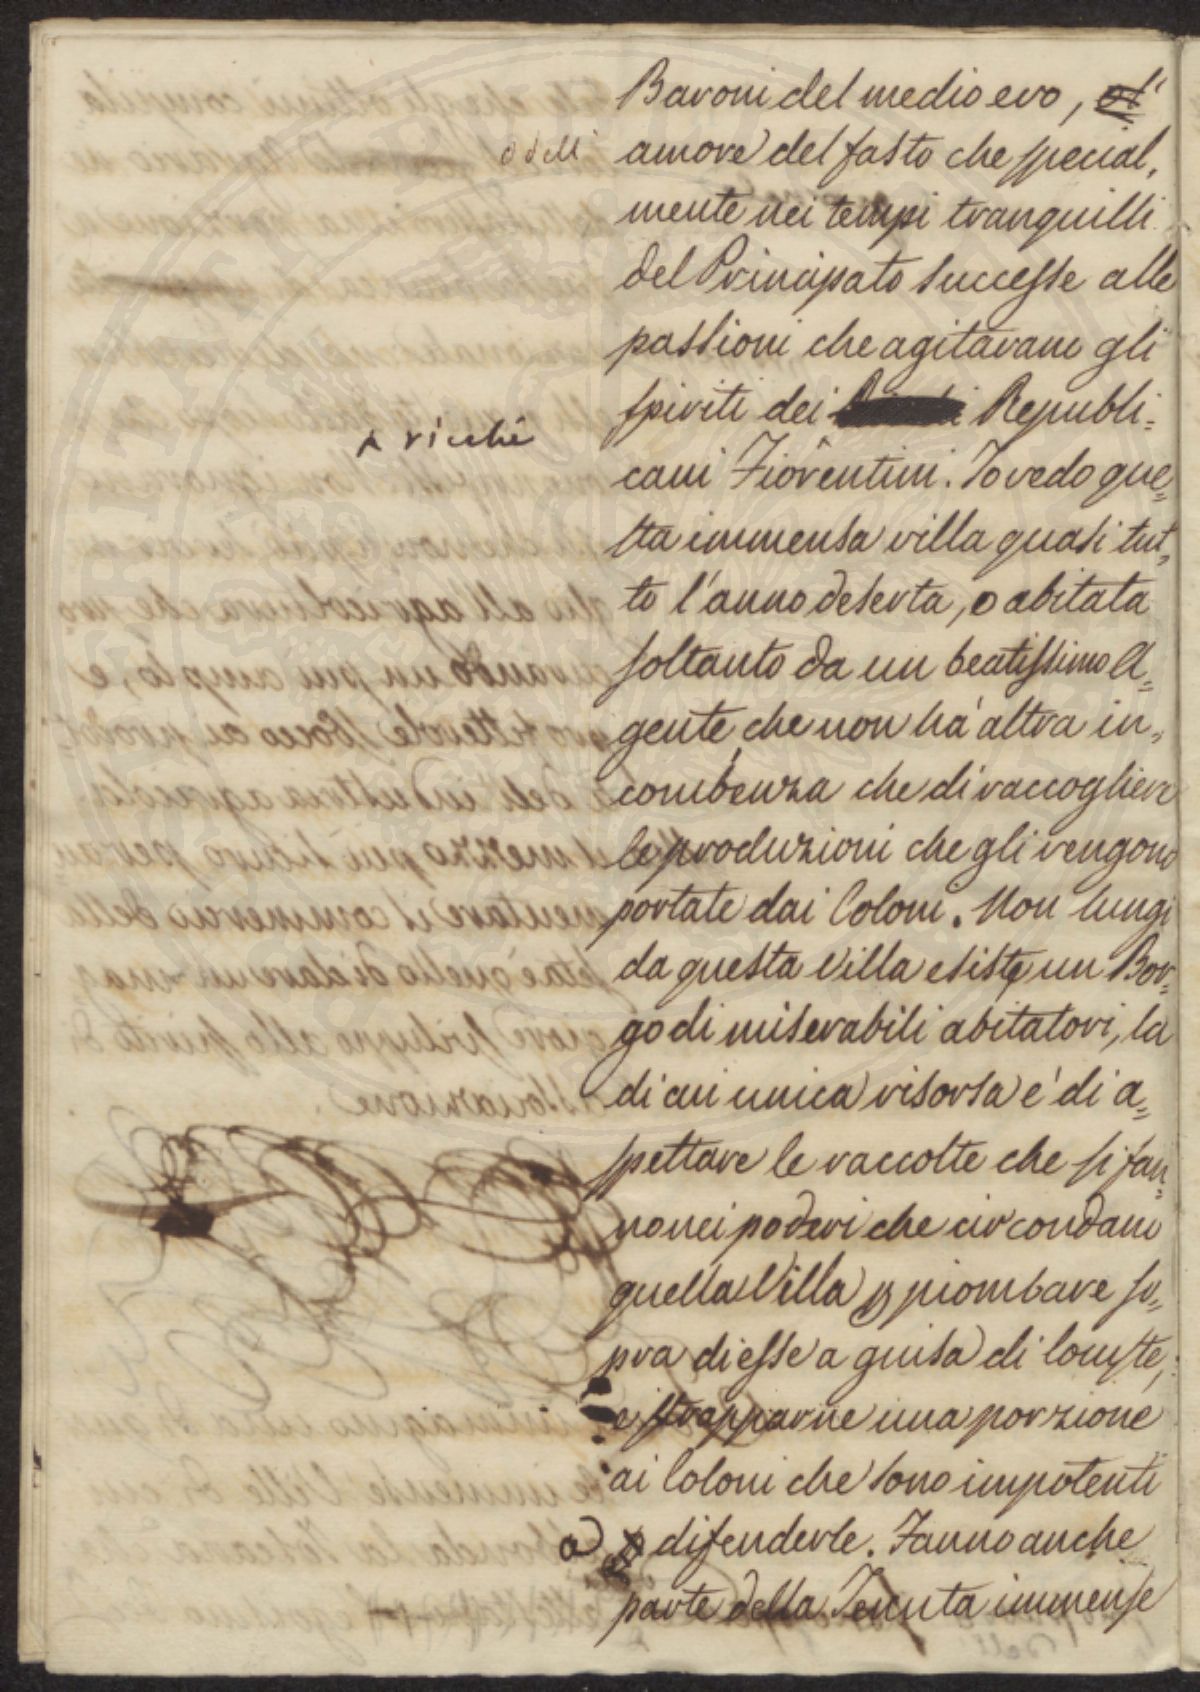 Baroni del medio evo, ol'
o dell'
amore del fasto che special,
mente nei tempi tranquilli
del Principato successe alle
passioni che agitavano gli
spiriti dei Republi=
ricchi
cani Fiorentini. Io vedo que=
sta immensa villa quasi tut=
to l'anno deserta, o abitata
soltanto da un beatissimo A=
gente che non há altra in=
combenza che di raccogliere
le produzioni che gli vengono
portate dai Coloni. Non lungi
da questa Villa esiste un Bor=
go di miserabili abitatori, la
di cui unica risorsa é di a=
spettare le raccolte che si fan=
no nei poderi che circondano
quella Villa p piombare so=
pra di esse a guisa di locuste,
e strapparne una porzione
ai Coloni che sono impotenti
a difenderle. Fanno anche
parte della Tenuta immense